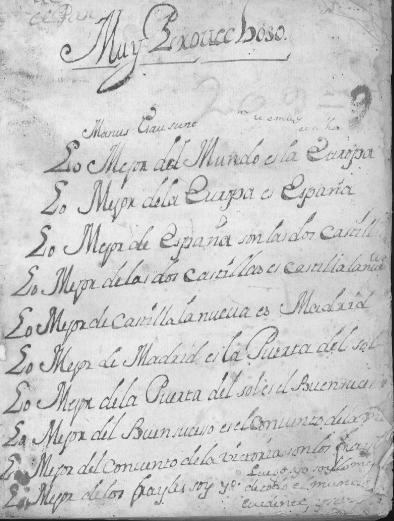 Muy Prouechoso.
209=9
Manus
Lo Mejor del Mundo es la Europa
Lo Mejor dela Europa es España
Lo Mejor de España son las dos Castill
Lo Mejor de las dos Castillas es Castilla la nue
Lo Mejor de Castilla la nueua es Madrid
Lo Mejor de Madrid es la Puerta del sol
Lo Mejor dela Puerta del sol es el Buensuceso
Lo Mejor del Buensuceso es el Conuento dela
Lo Mejor del Conuento de la Victoria son los frayles
Luego yo soy lo mejor
Lo Mejor de los frayles soy yo